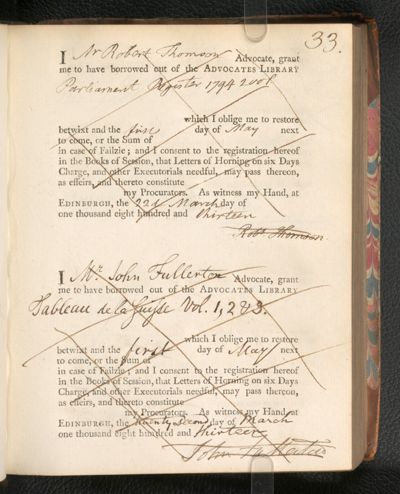 33.
I Mr Robert Thomson Advocate, grant
me to have borrowed out of the ADVOCATES LIBRARY
Parliament Register 1794 2 vol
which I oblige me to restore
betwixt and the first day of May next
to come, or the Sum of
in case of Failzie; and I consent to the registration hereof
in the Books of Session, that Letters of Horning on six Days
Charge, and other Executorials needful, may pass thereon,
as effeirs, and thereto constitute
my Procurators. As witness my Hand, at
EDINBURGH, the 22d March day of
one thousand eight hundred and thirteen
Robt Thomson
I Mr. John Fullerton Advocate, grant
me to have borrowed out of the ADVOCATES LIBRARY
Tableau de la Suisse Vol. 1, 2 & 3.
which I oblige me to restore
betwixt and the first day of May next
to come, or the Sum of
in case of Failzie; and I consent to the registration hereof
in the Books of Session, that Letters of Horning on six Days
Charge, and other Executorials needful, may pass thereon,
as effeirs, and thereto constitute
my Procurators. As witness my Hand, at
EDINBURGH, the twenty second day of March
one thousand eight hundred and thirteen
John Fullerton